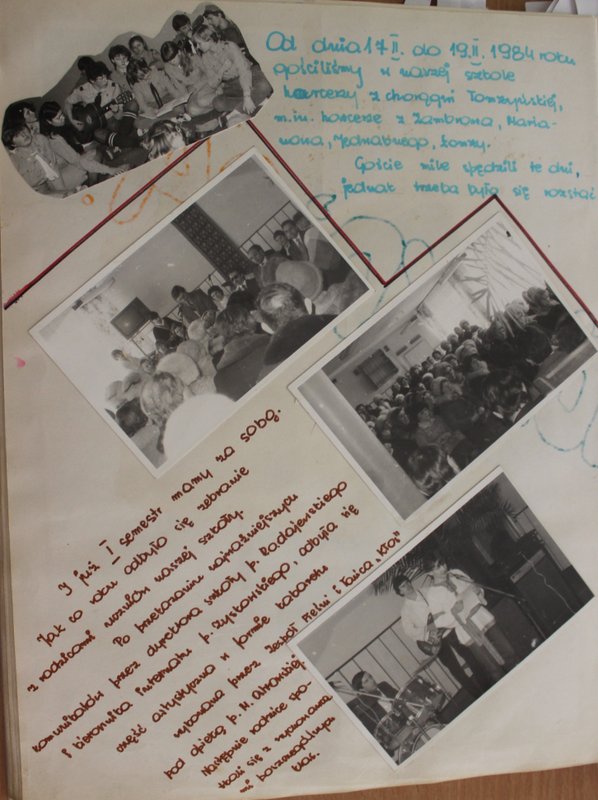 Od dnia 17 II. do 19.II. 1984 roku
gościliśmy w naszej szkole
harcerzy z chorągwi Łomżyńskiej,
m.in. harcerze z Zambrowa, Maria-
nowa, Jedwabnego, Łomży.
Goście mile spędzili te dni,
jednak trzeba było się rozstać
I już I semestr mamy za sobą.
Jak co roku odbyło się zebranie
z rodzicami uczniów naszej szkoły.
Po przekazaniu najważniejszych
komunikatów przez dyrektora szkoły p.
i kierownika internatu p. Zyskowskiego, odbyła się
część artystyczna w formie kabaretu
wykonana przez Zespół Pieśni i Tańca
pod opieką p. M.
Następnie rodzice spo-
tkali się z wychowawca-
mi poszczególnych
klas.